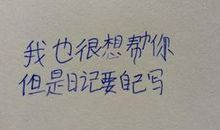 我也很想帮你
但是日记要自己写